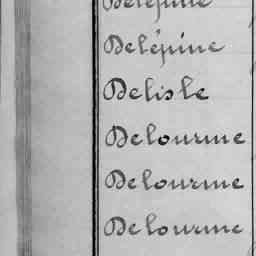 Delépine
Delépine
Delisle
Delourme
Delourme
Delourme